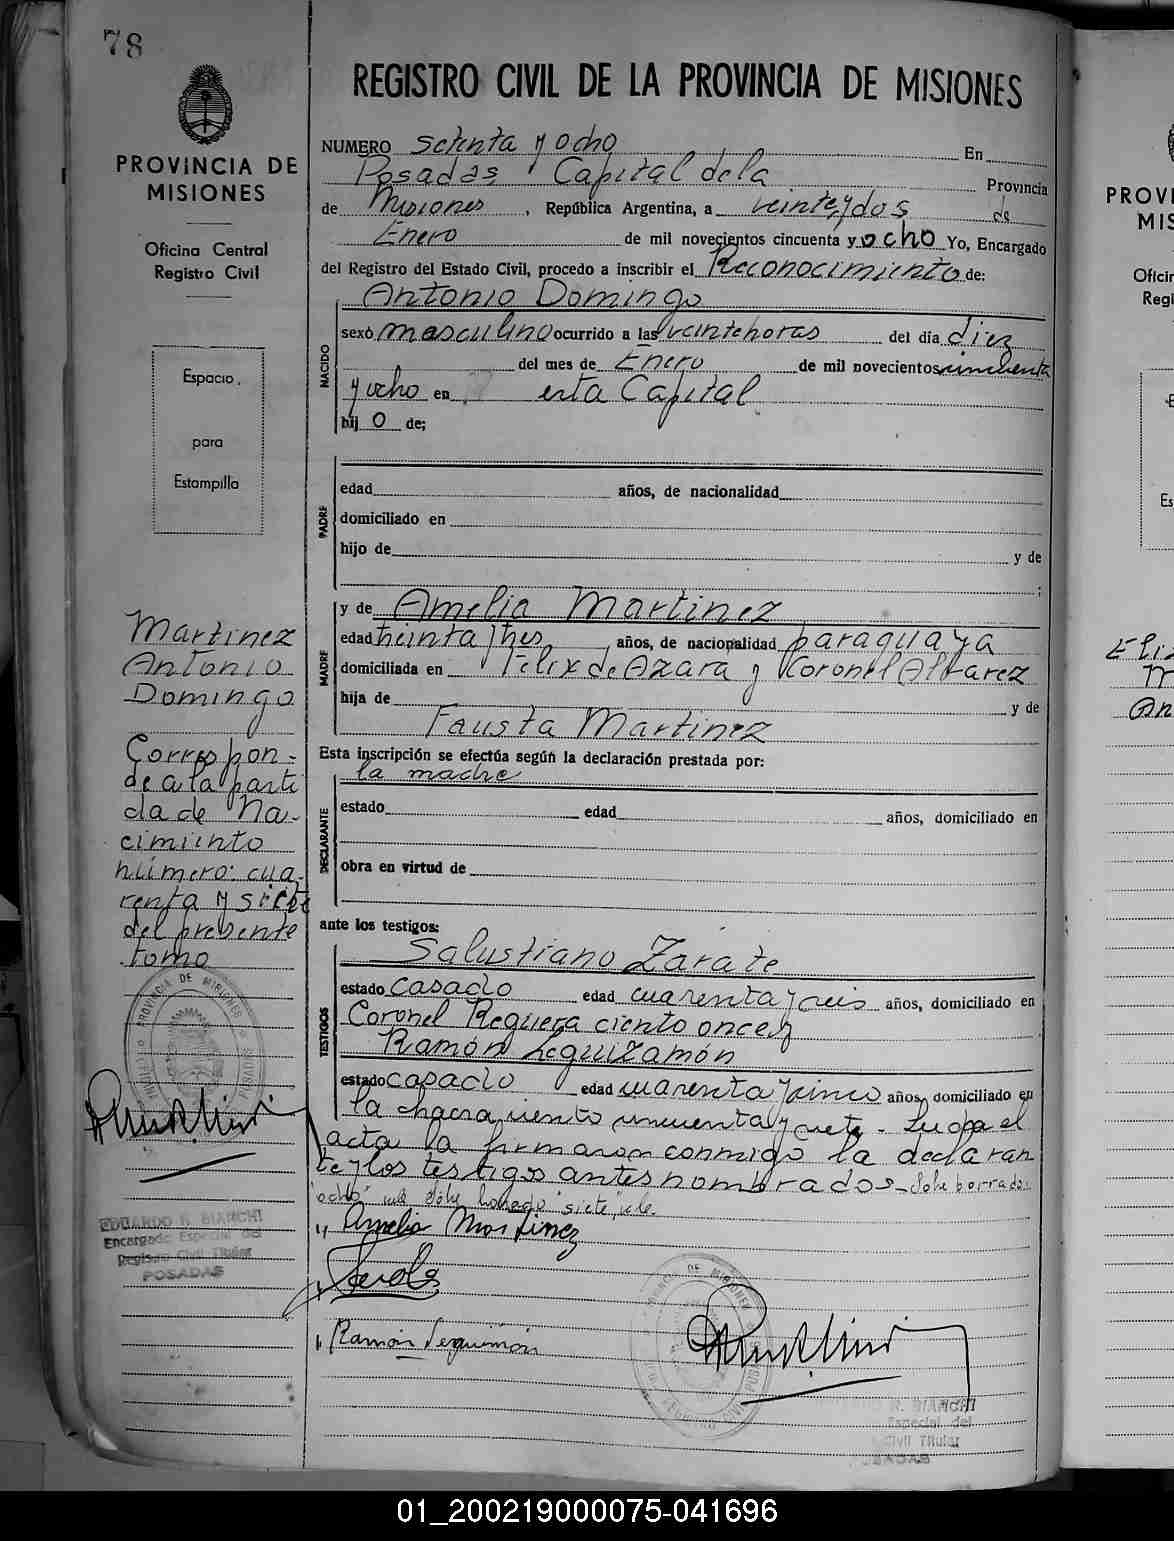 78
PROVINCIA DE
MISIONES
Oficina Central
Registro Civil
Espacio
para
Estampilla
Martinez
Antonio
Domingo
Correspon-
de a la parti
da de Na-
cimiento
número: cua-
renta y siete
del presente
tomo
EDUARDO R. BIANCHI
Encargado Especial del
Registro Civil Titular
POSADAS
REGISTRO CIVIL DE LA PROVINCIA DE MISIONES
NUMERO setenta y ocho En
Posadas, Capital de la Provincia
de Misiones, República Argentina, a veinte y dos de
Enero de mil novecientos cincuenta y ocho Yo, Encargado
del Registro del Estado Civil, procedo a inscribir el Reconocimiento de:
Antonio Domingo
NACIDO
sexo masculino ocurrido a las veinte horas del día diez
del mes de Enero de mil novecientos cincuenta
y ocho en esta Capital
hij o de;
PADRE
edad años, de nacionalidad
domiciliado en
hijo de y de
;
MADRE
y de Amelia Martinez
edad treinta y tres, años, de nacionalidad paraguaya
domiciliada en Felix de Azara y Coronel Alvarez
hija de y de
Fausta Martinez
Esta inscripción se efectúa según la declaración prestada por:
la madre
DECLARANTE
estado edad años, domiciliado en
obra en virtud de
ante los testigos:
TESTIGOS
Salustiano Zarate
estado casado edad cuarenta y seis años, domiciliado en
Coronel Reguera ciento once y
Ramón Leguizamón
estado casado edad cuarenta y cinco años, domiciliado en
la chacra ciento cincuenta y siete. Leida el
acta la firmaron conmigo la declaran
te y los testigos antes nombrados - Sobre borrado:
"ocho" vale Sobre borrado "siete", vale.
Amelia Martinez
Ramón Leguizamón
R. BIANCHI
Especial del
Civil Titular
POSADAS
PROVI
MIS
Oficin
Regi
Es
Eliz
M
An
01_200219000075-041696